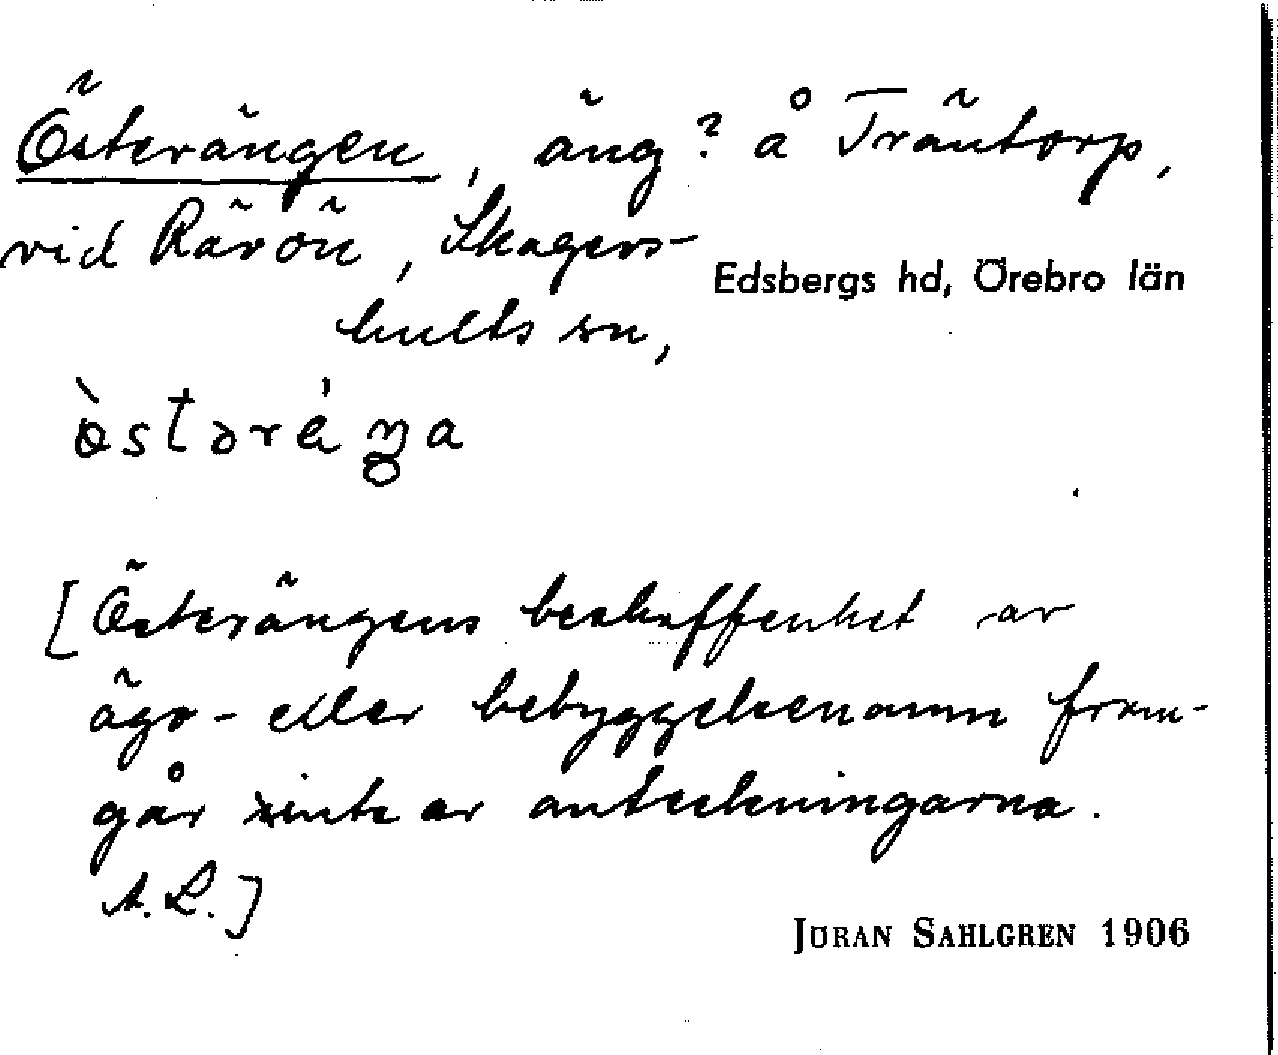 Österängen, äng? å Träntorp,
vid Rävön, Skagers-
Edsbergs hd, Örebro län
hults sn,
[Österängens beskaffenhet av
ägo- eller bebyggelsenamn fram-
går inte av anteckningarna.
A.L.]
JÖRAN SAHLGREN 1906